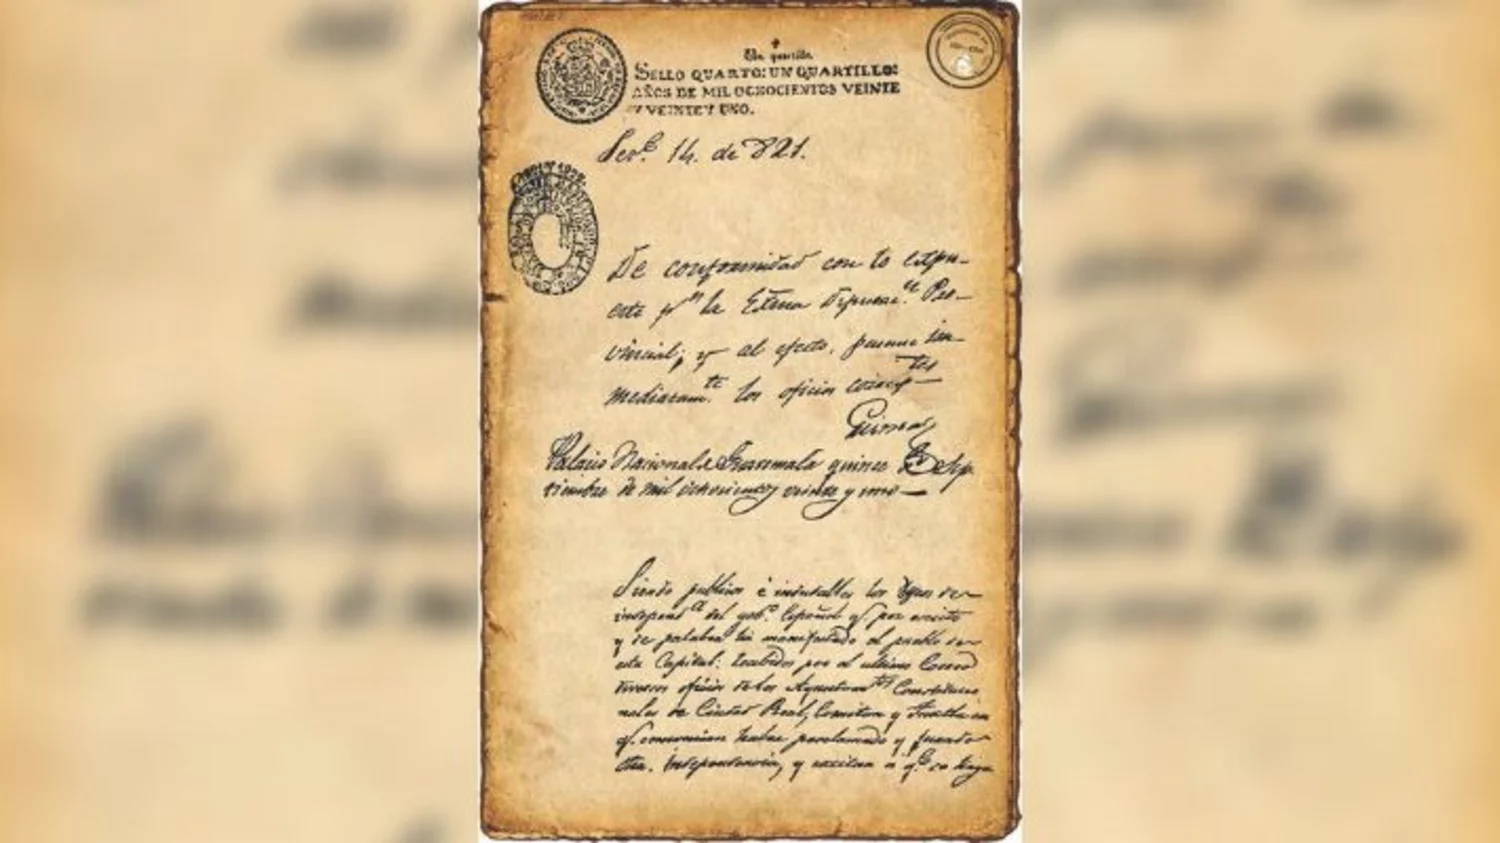 Un quartillo.
SELLO QUARTO: UN QUARTILLO:
AÑOS DE MIL OCHOCIENTOS VEINTE
Y VEINTE Y UNO.
14. de 821.
De conformidad con lo espu-
esto pʳ la Exma Pro-
vincial; y al efecto, pasense in-
mediatamᵗᵉ los oficios
Palacio Nacional de Guatemala quince de Sep-
tiembre de mil ochocientos veinte y uno—
Siendo publicos é indudables los deseos de
independᵃ del gobº Español qᵉ por escrito
y de palabra ha manifestado el pueblo de
esta Capital: recibidos por el ultimo Correo
diversos oficios de los Ayuntamᵗᵒˢ Constitucio
nales de Ciudad Real, Comitan y Tuxtla en
qᵉ comunican haber proclamado y jurado
dha. independencia, y excitan á qᵉ se haga